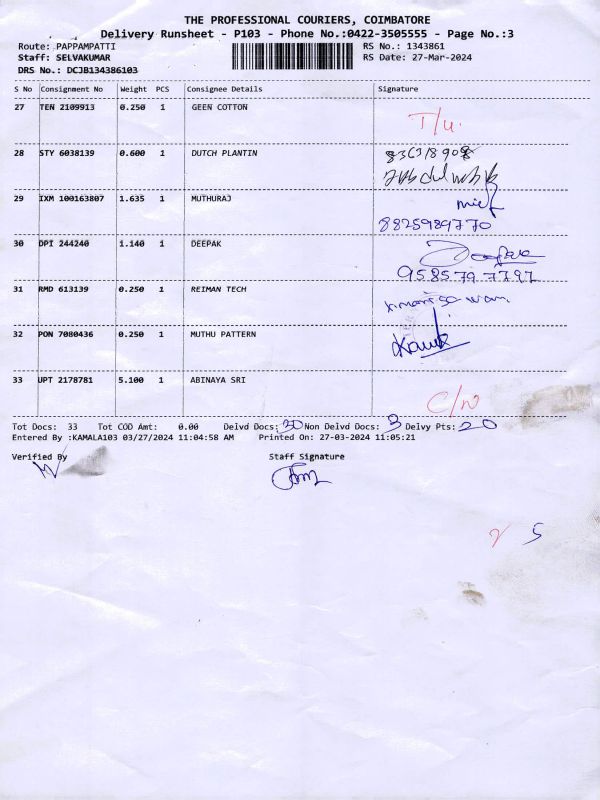 THE PROFESSIONAL COURIERS, COIMBATORE
Delivery Runsheet - P103 - Phone No.:0422-3505555 - Page No.:3
Route: PAPPAMPATTI RS No.: 1343861
Staff: SELVAKUMAR RS Date: 27-Mar-2024
DRS No.: DCJB134386103
S No Consignment No Weight PCS Consignee Details Signature
27 TEN 2109913 0.250 1 GEEN COTTON
T/U.
28 STY 6038139 0.600 1 DUTCH PLANTIN
29 IXM 100163807 1.635 1 MUTHURAJ
8825989770
30 DPI 244240 1.140 1 DEEPAK
9585797797
31 RMD 613139 0.250 1 REIMAN TECH
32 PON 7080436 0.250 1 MUTHU PATTERN
33 UPT 2178781 5.100 1 ABINAYA SRI
C/N
Tot Docs: 33 Tot COD Amt: 0.00 Delvd Docs: 30 Non Delvd Docs: 3 Delvy Pts: 20
Entered By :KAMALA103 03/27/2024 11:04:58 AM Printed On: 27-03-2024 11:05:21
Verified By Staff Signature
5